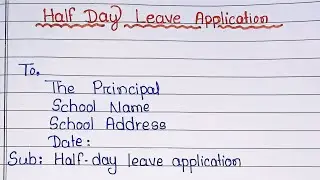 Half Day Leave Application
To,
The Principal
School Name
School Address
Date:
Sub: Half-day leave application